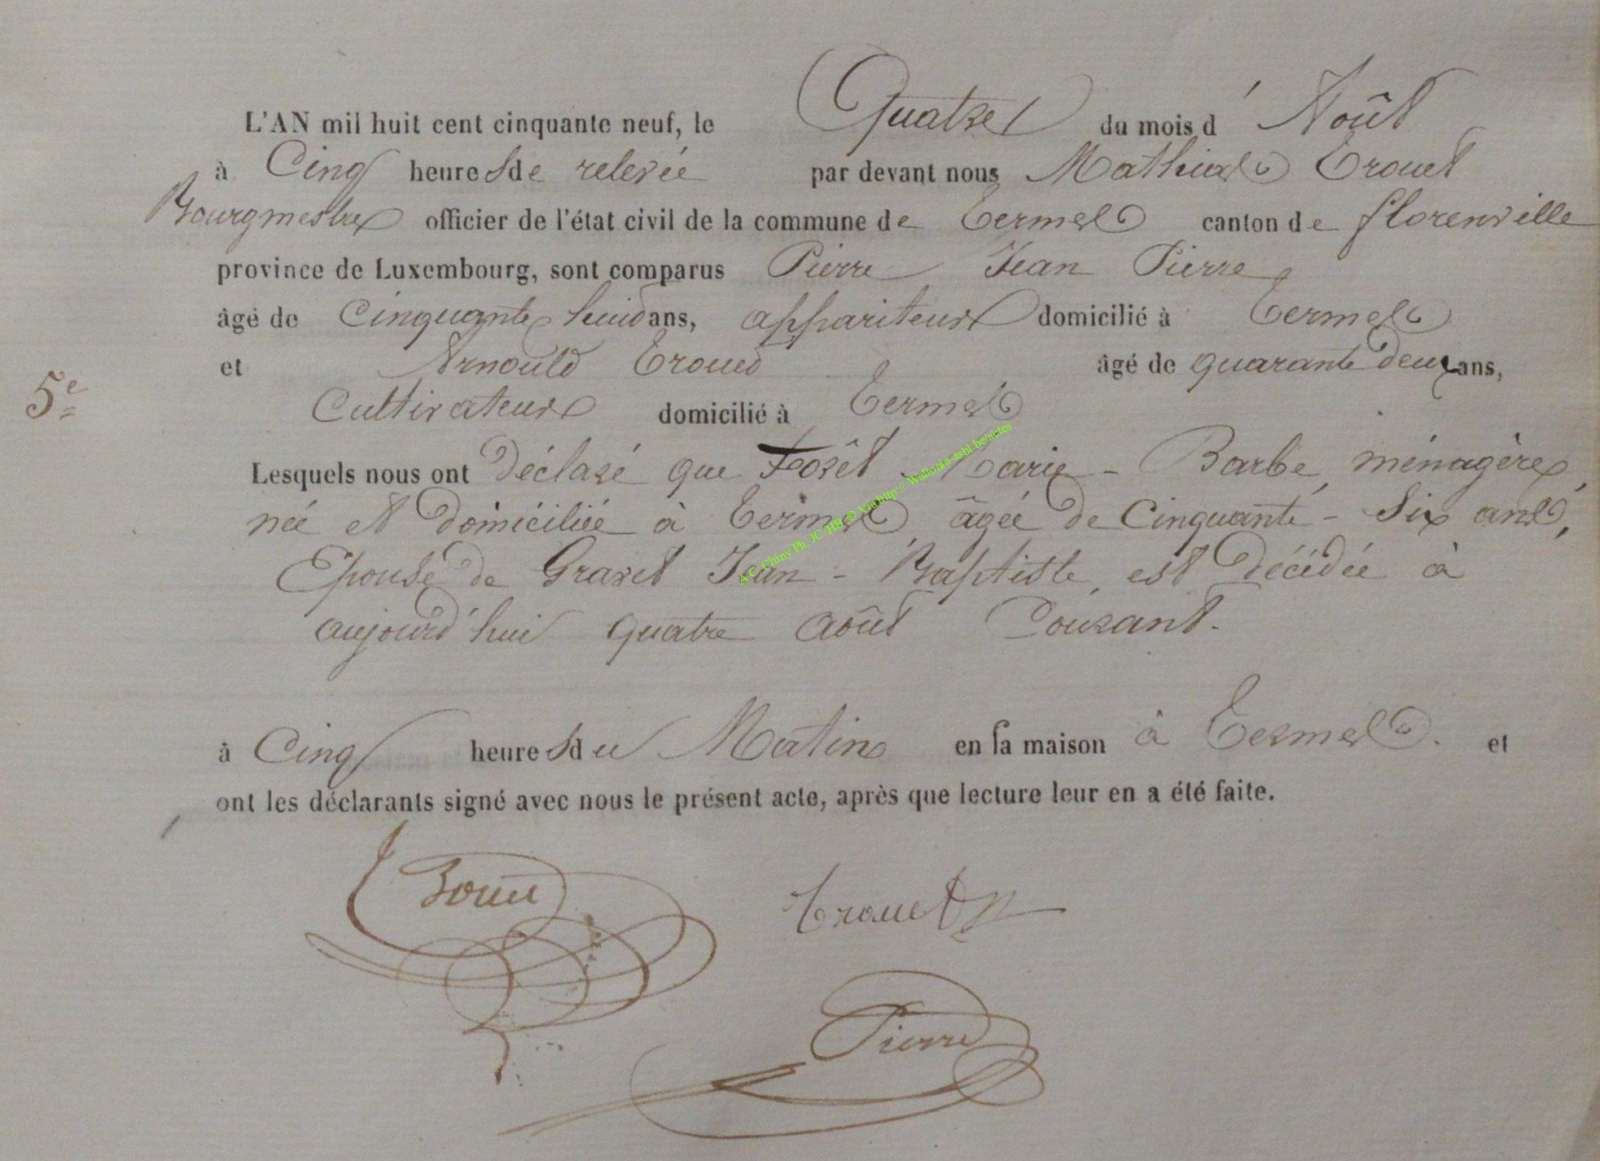 L'AN mil huit cent cinquante neuf, le Quatre du mois d' Août
à Cinq heures de relevée par devant nous Mathias Trouet
Bourgmestre officier de l'état civil de la commune de Termes canton de florenville
province de Luxembourg, sont comparus Pierre Jean Pierre
âgé de Cinquante huit ans, appariteur domicilié à Termes
et Arnould Trouet âgé de quarante deux ans,
5e
Cultivateur domicilié à Termes
Lesquels nous ont déclaré que Forêt Marie - Barbe, ménagère,
née et domiciliée à Termes, âgée de Cinquante - Six ans,
Epouse de Gravet Jean - Baptiste, est décédée à
aujourd'hui quatre août Courant.
à Cinq heures du Matin en sa maison à Termes. et
ont les déclarants signé avec nous le présent acte, après que lecture leur en a été faite.
Trouet
Pierre